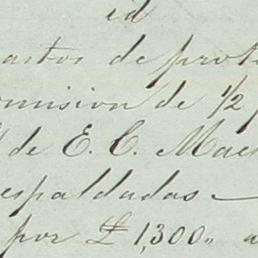 id
astos de prote
omision de 1/2 p
de E. C. Mac
espaldadas
por £ 1,300,, a